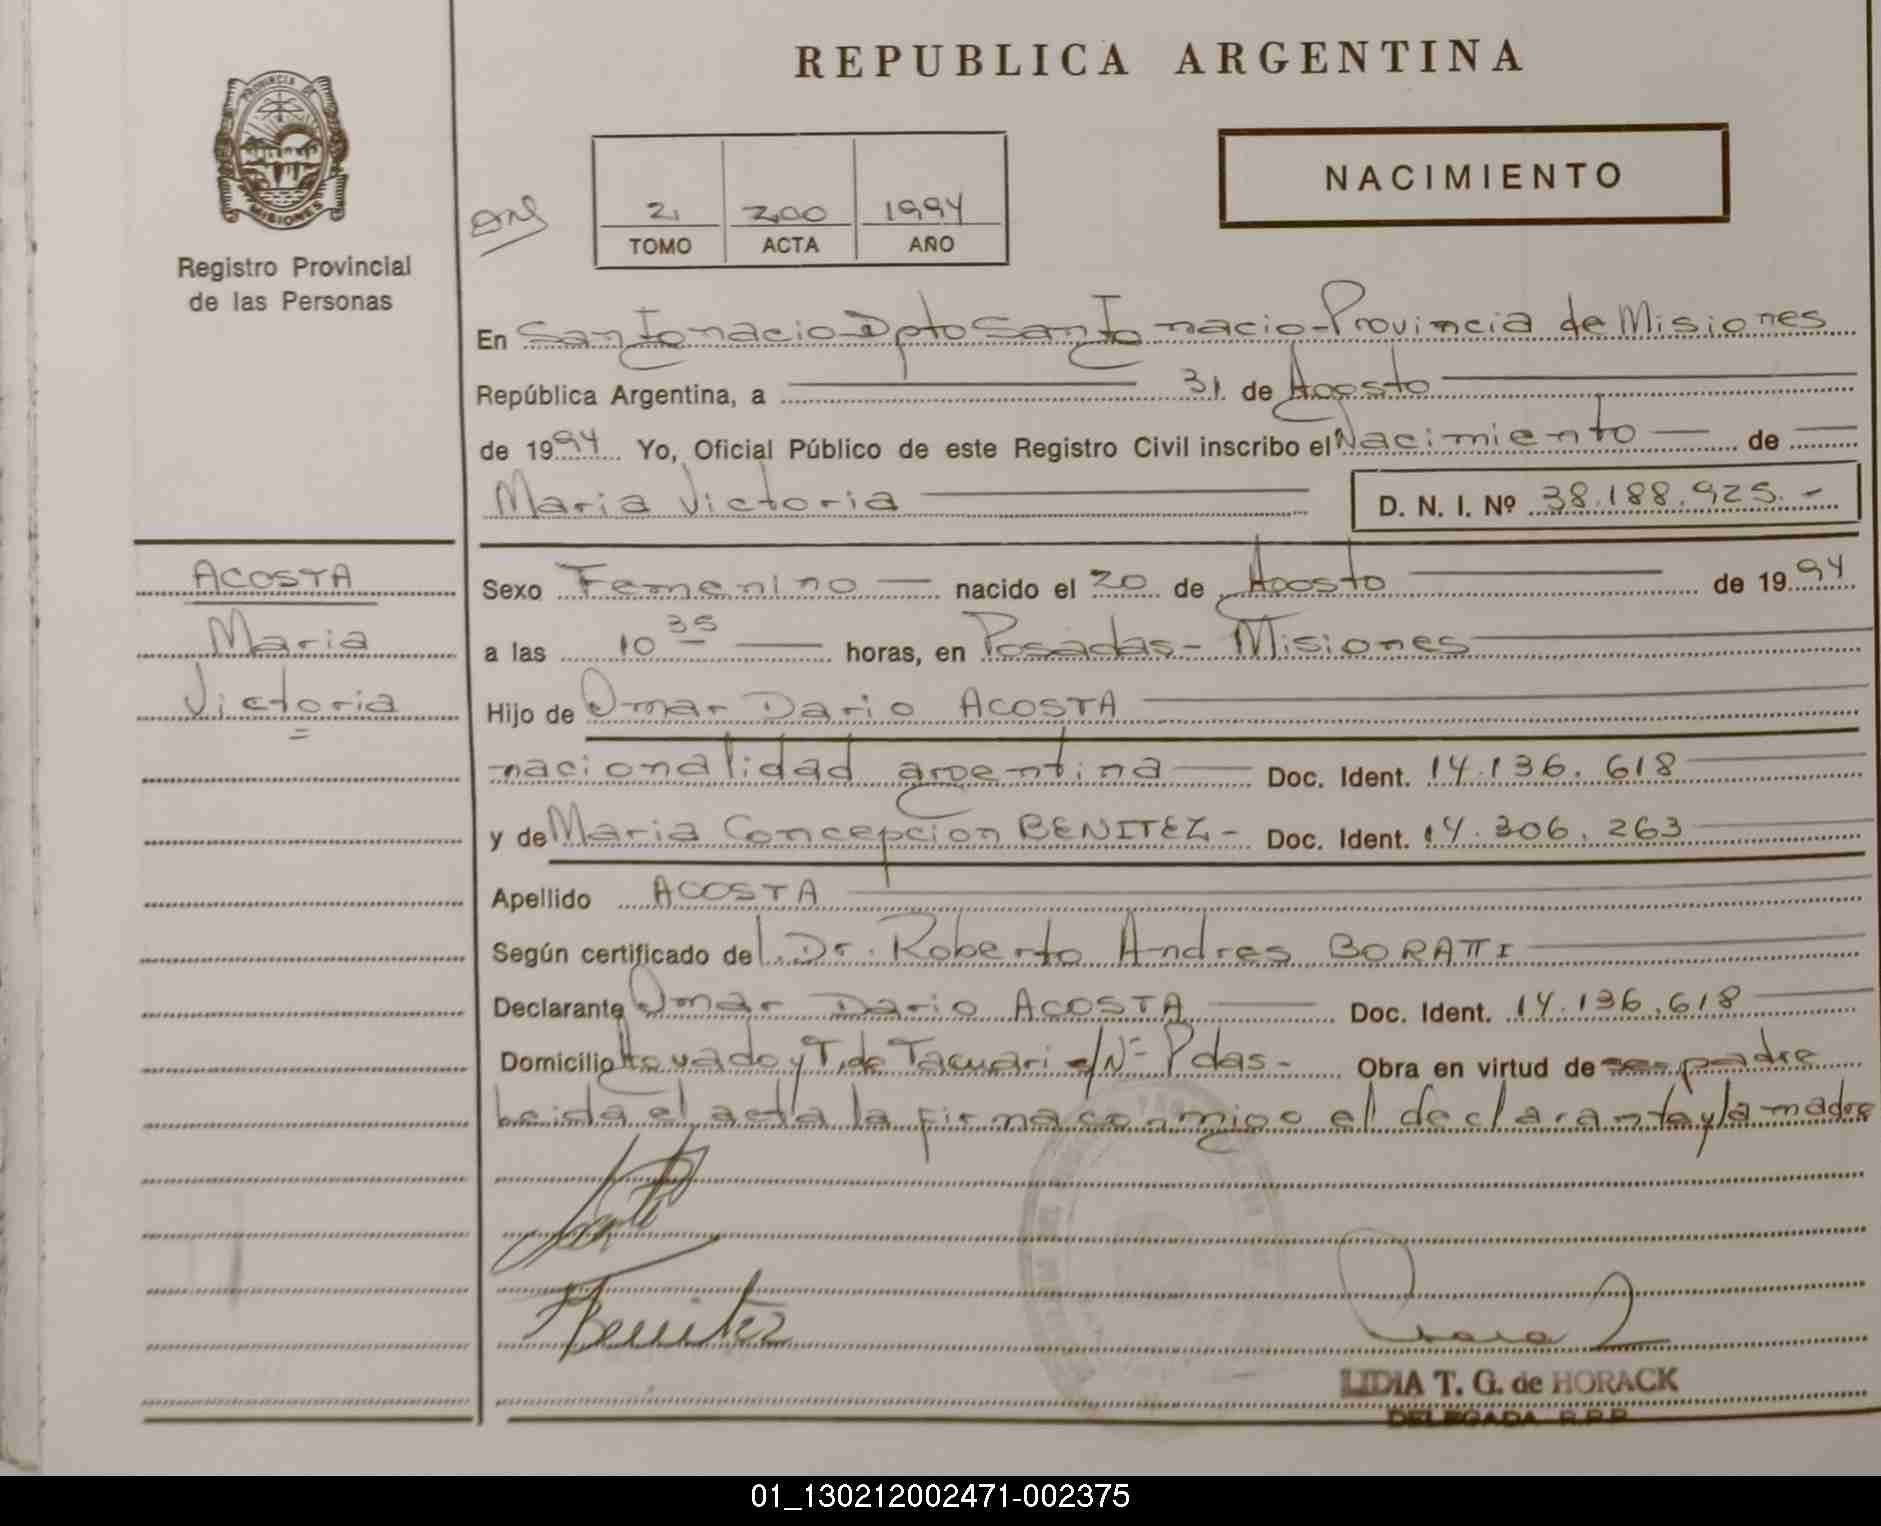 REPUBLICA ARGENTINA
PROVINCIA DE
MISIONES
Registro Provincial
de las Personas
NACIMIENTO
2 200 1994
TOMO ACTA AÑO
En San Ignacio Dpto San Ignacio - Provincia de Misiones
República Argentina, a 31 de Agosto
de 1994 Yo, Oficial Público de este Registro Civil inscribo el Nacimiento de
Maria Victoria
D. N. I. Nº 38.188.925.-
ACOSTA
Maria
Victoria
Sexo Femenino nacido el 20 de Agosto de 1994
a las 10 35 horas, en Posadas - Misiones
Hijo de Omar Dario ACOSTA
nacionalidad argentina Doc. Ident. 14.136.618
y de Maria Concepcion BENITEZ - Doc. Ident. 14.306.263
Apellido ACOSTA
Según certificado de l Dr. Roberto Andres BORATTI
Declarante Omar Dario ACOSTA Doc. Ident. 14.136.618
Domicilio y T. de Tacuari s/Nº Pdas - Obra en virtud de ser padre
leida el acta la firma conmigo el declarante y la madre
Benitez
LIDIA T. G. de HORACK
DELEGADA R.P.P.
01_130212002471-002375